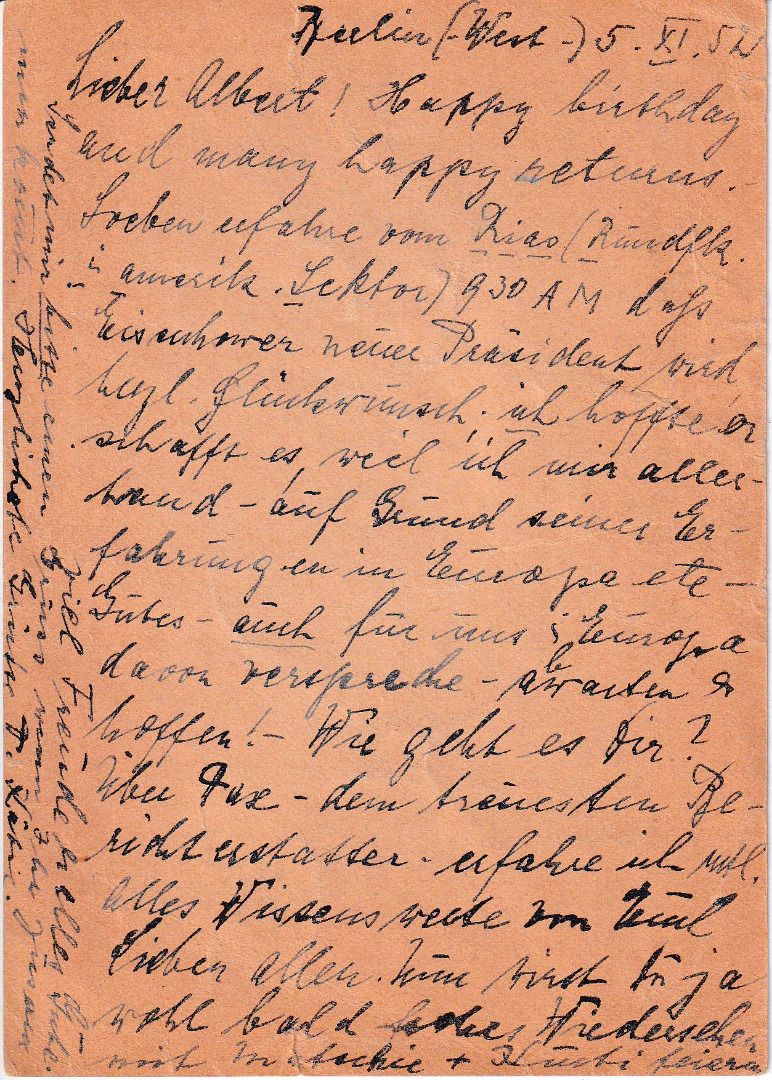 Berlin (-West-) 5. XI. 52
Lieber Albert! Happy birthday
and many happy returns.-
Soeben erfahre vom Rias (Rundfk.
i. amerik. Sektor) 930 AM daſs
Eisenhower neuer Präsident wird
herzl. Glückwunsch. ich hoffte er
schafft es, weil ich mir aller-
hand - auf Grund seiner Er-
fahrungen in Europa etc -
Gutes - auch für uns i. Europa
davon verspreche - abwarten &
hoffen! - Wie geht es Dir?
Über Max - dem treuesten Be-
richterstatter - erfahre ich
alles Wissenswerte von
Lieben allen. Nun wirst Du ja
wohl bald Wiedersehen
mit + feiern
Viel Freude & alles Gute.
Sendet mir bitte einen Gruss wenn Ihr zusam
men kommt. Herzlichste Grüsse D.